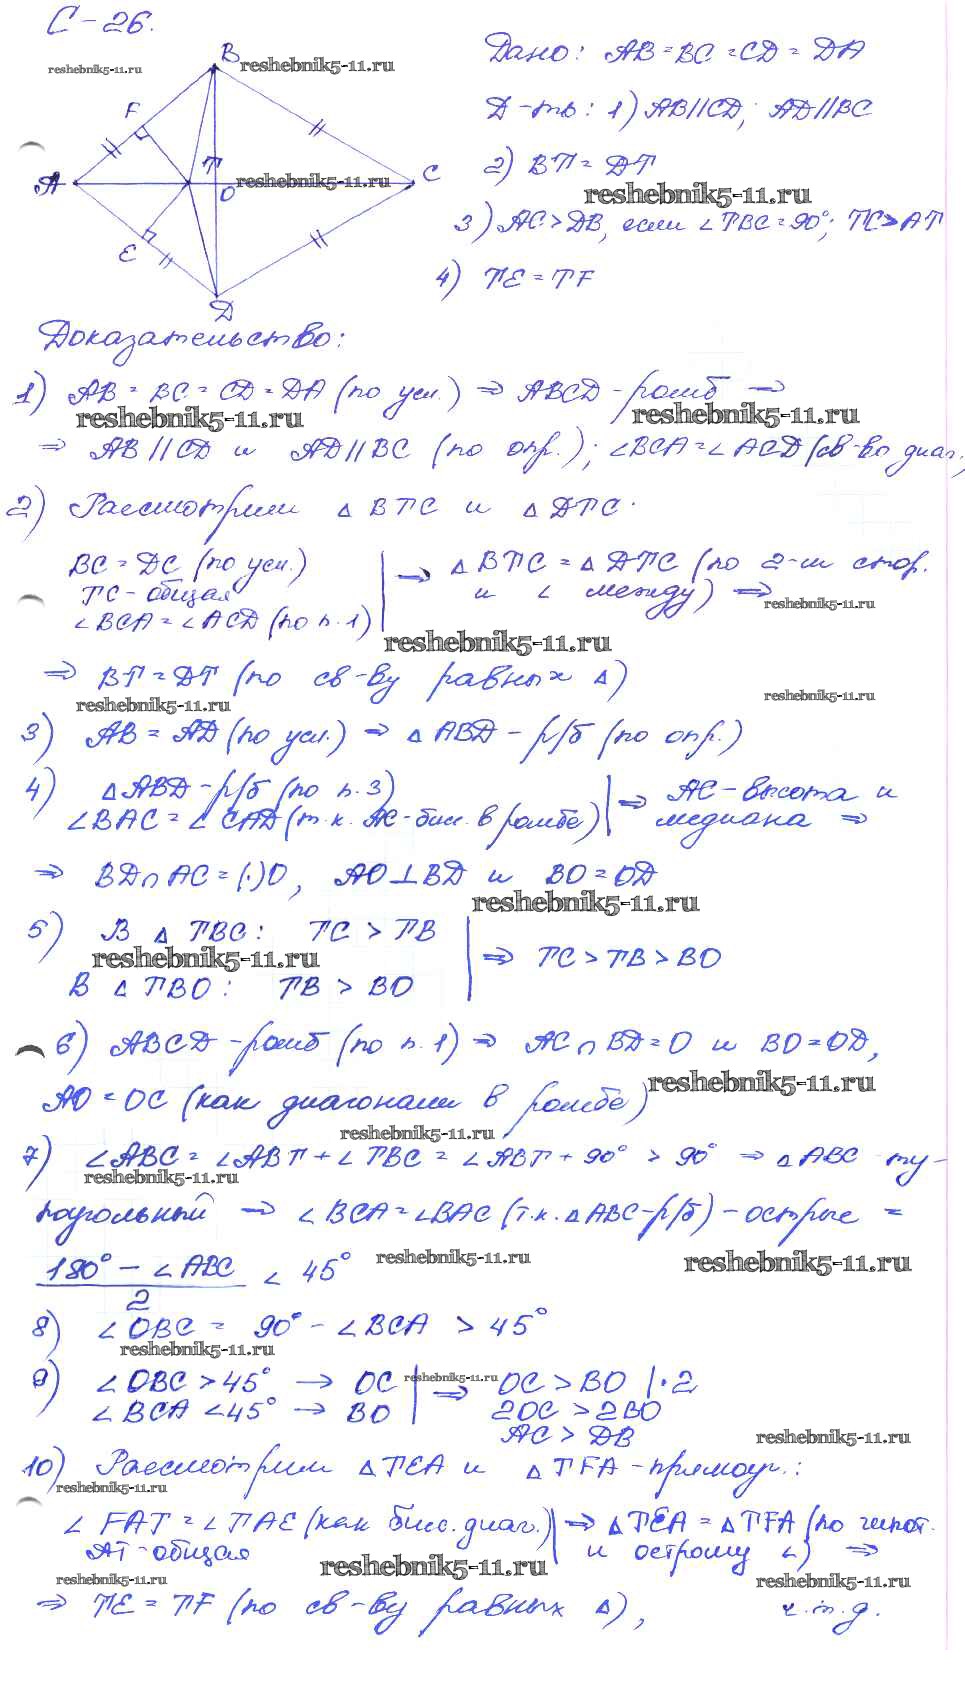 С-26.
reshebnik5-11.ru
B
reshebnik5-11.ru
F
A
T
O
reshebnik5-11.ru
C
E
D
Дано: AB = BC = CD = DA
Д-ть: 1) AB//CD; AD//BC
2) BT = DT
reshebnik5-11.ru
3) AC > DB, если ∠TBC = 90°; TC > AT
4) TE = TF
Доказательство:
1) AB = BC = CD = DA (по усл.) ⇒ ABCD - ромб ⇒
reshebnik5-11.ru reshebnik5-11.ru
⇒ AB // CD и AD // BC (по опр.); ∠BCA = ∠ACD (св-во диаг.)
2) Рассмотрим △ BTC и △ DTC.
BC = DC (по усл.) | ⇒ △ BTC = △ DTC (по 2-м стор.
TC - общая и ∠ между) ⇒
reshebnik5-11.ru
∠BCA = ∠ACD (по п. 1)
reshebnik5-11.ru
⇒ BT = DT (по св-ву равных △)
reshebnik5-11.ru reshebnik5-11.ru
3) AB = AD (по усл.) ⇒ △ ABD - р/б (по опр.)
4) △ ABD - р/б (по п. 3) | ⇒ AC - высота и
∠BAC = ∠CAD (т.к. AC - бис. в ромбе) медиана ⇒
⇒ BD ∩ AC = (·) O, AO ⊥ BD и BO = OD
reshebnik5-11.ru
5) В △ TBC: TC > TB | ⇒ TC > TB > BO
reshebnik5-11.ru
В △ TBO: TB > BO
6) ABCD - ромб (по п. 1) ⇒ AC ∩ BD = O и BO = OD,
reshebnik5-11.ru
AO = OC (как диагонали в ромбе)
reshebnik5-11.ru
7) ∠ABC = ∠ABT + ∠TBC = ∠ABT + 90° > 90° ⇒ △ ABC - ту-
reshebnik5-11.ru
поугольный ⇒ ∠BCA = ∠BAC (т.к. △ ABC - р/б) - острые =
reshebnik5-11.ru reshebnik5-11.ru
180° - ∠ABC / 2 < 45°
8) ∠OBC = 90° - ∠BCA > 45°
reshebnik5-11.ru
9) ∠OBC > 45° → OC | ⇒ OC > BO | · 2
reshebnik5-11.ru
∠BCA < 45° → BO 2OC > 2BO
AC > DB
reshebnik5-11.ru
10) Рассмотрим △ TEA и △ TFA - прямоуг.:
reshebnik5-11.ru
∠FAT = ∠TAE (как бисс. диаг.) | ⇒ △ TEA = △ TFA (по гипот.
AT - общая и острому ∠) ⇒
reshebnik5-11.ru
reshebnik5-11.ru reshebnik5-11.ru
⇒ TE = TF (по св-ву равных △), ч.т.д.